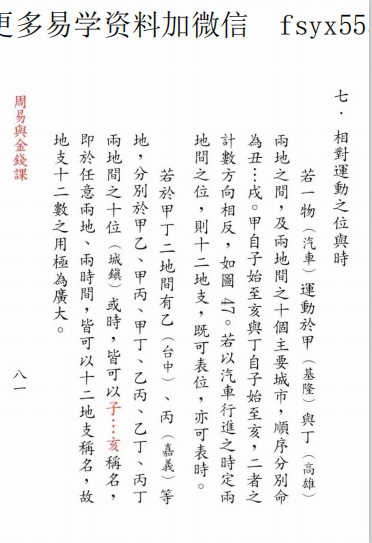 更多易学资料加微信 fsyx55
七．相對運動之位與時
若一物（汽車）運動於甲（基隆）與丁（高雄）
兩地之間，及兩地間之十個主要城市，順序分別命
為丑…戌。甲自子始至亥與丁自子始至亥，二者之
計數方向相反，如圖47。若以汽車行進之時定兩
地間之位，則十二地支，既可表位，亦可表時。
若於甲丁二地間有乙（台中）、丙（嘉義）等
地，分別於甲乙、甲丙、甲丁、乙丙、乙丁、丙丁
兩地間之十位（城鎮）或時，皆可以子…亥稱名，
即於任意兩地、兩時間，皆可以十二地支稱名，故
地支十二數之用極為廣大。
周易與金錢課
八一